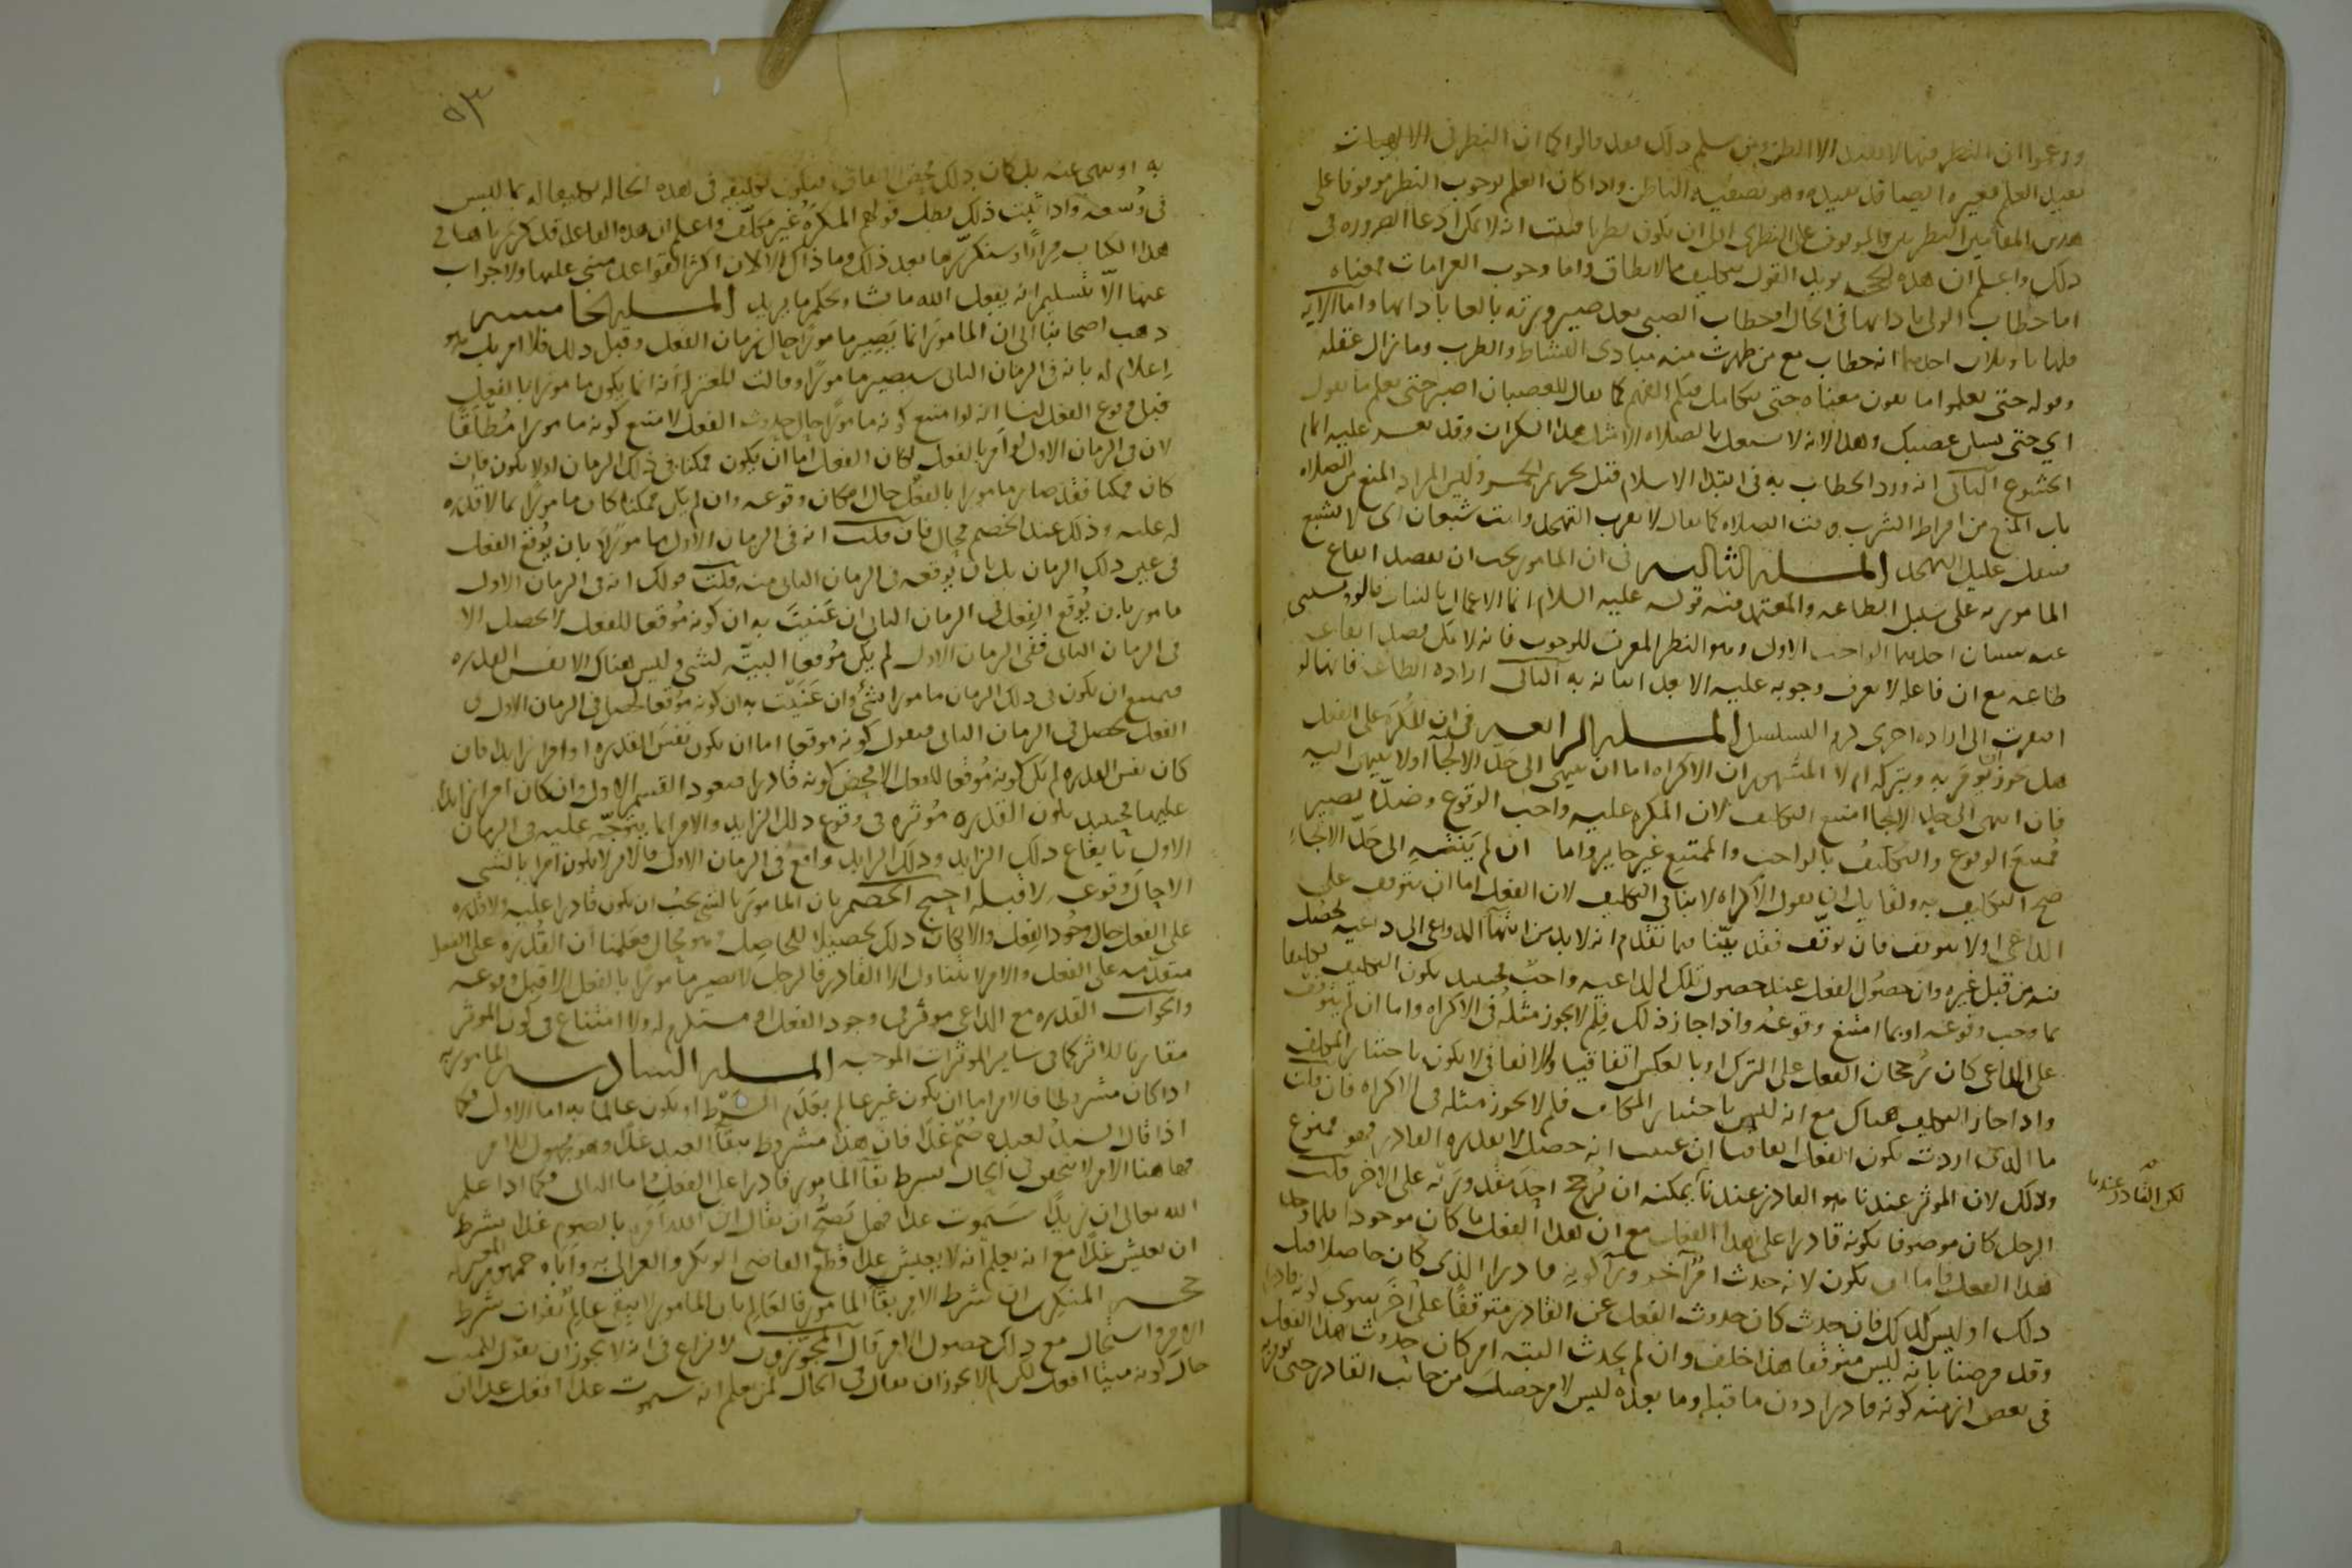 وزعموا ان النظر فيها لا يفيد الا الظن ومن سلم ذلك فقد قالوا كما ان النظر في الالهيات
يفيد العلم فغيره ايضا قد يفيده وهو تصفية الباطن واذا كان العلم بوجوب النظر موقوفا على
هذين المقامين النظريين والموقوف على النظري اولى ان يكون نظريا فثبت انه لا يمكن ادعا الضروره في
ذلك واعلم ان هذه الحجج يويد القول بتكليف ما لا يطاق واما وجوب الغرامات فمعناه
اما خطاب الولي بادائها في الحال او خطاب الصبي بعد صيرورته بالغا بادائها واما الآيه
فلها تاويلان احدهما انه خطاب مع من ظهرت منه مبادي النشاط والطرب وما زال عقله
وقوله حتى تعلموا ما تقولون معناه حتى يتكامل فيكم الفهم كما يقال للغضبان اصبر حتى تعلم ما تقول
اي حتى يسكن غضبك وهذا لانه لا يشتغل بالصلاه الا مثل هذا السكران وقد يعسر عليه اتمام
الخشوع الثاني انه ورد الخطاب به في ابتدا الاسلام قبل تحريم الخمر وليس المراد المنع من الصلاه
بل المنع من افراط الشرب وقت الصلاه كما يقال لا تقرب التهجد وانت شبعان اي لا تشبع
فيثقل عليك التهجد المسله الثالثه في ان المامور يجب ان يقصد ايقاع
المامور به على سبيل الطاعه والمعتمد فيه قوله عليه السلام انما الاعمال بالنيات قالوا ويستثنى
عنه شيئان احدهما الواجب الاول وهو النظر المعرف للوجوب فانه لا يمكن قصد ايقاعه
طاعه مع ان فاعله لا يعرف وجوبه عليه الا بعد اتيانه به الثاني اراده الطاعه فانها لو
افتقرت الى اراده اخرى لزم التسلسل المسله الرابعه في ان المكره على الفعل
هل يجوز ان يؤمر به ويتركه ام لا المشهور ان الاكراه اما ان ينتهي الى حد الالجآ اولا ينتهي اليه
فان انتهى الى حد الالجا امتنع التكليف لان المكره عليه واجب الوقوع وضده يصير
ممتنع الوقوع والتكليف بالواجب والممتنع غير جايز واما ان لم ينته الى حد الالجاء
صح التكليف به ولقايل ان يقول الاكراه لا ينافي التكليف لان الفعل اما ان يتوقف على
الداعي اولا يتوقف فان توقف فقد بينا فيما تقدم انه لا بد من انتهآ الدواعي الى داعيه تحصل
فيه من قبل غيره وان حصول الفعل عند حصول تلك الداعيه واجب فحينئذ يكون التكليف تكليفا
بما وجب وقوعه او بما امتنع وقوعه واذا جاز ذلك فلم لا يجوز مثله في الاكراه واما ان لم يتوقف
على الداعي كان رجحان الفعل على الترك او بالعكس اتفاقيا والاتفاقي لا يكون باختيار المكلف
واذا جاز التكليف هناك مع انه ليس باختيار المكلف فلم لا يجوز مثله في الاكراه فان قلت
ما الذي اردت بكون الفعل اتفاقيا ان عنيت انه حصل لا بقدره القادر فهو ممنوع
وذلك لان الموثر عندنا هو القادر لكن القادر عندنا يمكنه ان يرجح احد مقدوريه على الاخر قلت
الرجل كان موصوفا بكونه قادرا على هذا الفعل مع ان هذا الفعل ما كان موجودا فلما وجد
هذا الفعل فاما ان يكون لانه حدث امر آخر ورآ كونه قادرا الذي كان حاصلا قبل
ذلك او ليس كذلك فان حدث كان حدوث الفعل عن القادر متوقفا على آخر سوى كونه قادرا
وقد فرضنا بانه ليس متوقفا هذا خلف وان لم يحدث البته امر كان حدوث هذا الفعل
في بعض ازمنه كونه قادرا دون ما قبله وما بعده ليس لامر حصل من جانب القادر حتى يومر
به او ينهى عنه بل كان ذلك محض الاتفاق فيكون تكليفه في هذه الحاله تكليفا له بما ليس
في وسعه واذا ثبت ذلك بطل قولهم المكره غير مكلف واعلم ان هذه القاعده قد كررناها في
هذا الكتاب مرارا وسنكررها بعد ذلك وما ذاك الا لان اكثر القواعد مبني عليها ولا جواب
عنها الا بتسليم انه يفعل الله ما شا ويحكم ما يريد المسله الخامسه
ذهب اصحابنا الى ان المامور انما يصير مامورا حال زمان الفعل وقبل ذلك فلا امر بل هو
اعلام له بانه في الزمان الثاني سيصير مامورا وقالت المعتزله انه انما يكون مامورا بالفعل
قبل وقوع الفعل لنا انه لو امتنع كونه مامورا حال حدوث الفعل لامتنع كونه مامورا مطلقا
لان في الزمان الاول لو امر بالفعل لكان الفعل اما ان يكون ممكنا في ذلك الزمان اولا يكون فان
كان ممكنا فقد صار مامورا بالفعل حال امكان وقوعه وان لم يكن ممكنا كان مامورا بما لا قدره
له عليه وذلك عند الخصم محال فان قلت انه في الزمان الاول مامور لا بان يوقع الفعل
في عين ذلك الزمان بل بان يوقعه في الزمان الثاني منه قلت قولك انه في الزمان الاول
مامور بان يوقع الفعل في الزمان الثاني ان عنيت به ان كونه موقعا للفعل لا يحصل الا
في الزمان الثاني ففي الزمان الاول لم يكن موقعا البته لشي وليس هناك الا نفس القدره
فيمتنع ان يكون في ذلك الزمان مامورا بشئ وان عنيت به ان كونه موقعا يحصل في الزمان الاول و
الفعل يحصل في الزمان الثاني فنقول كونه موقعا اما ان يكون نفس القدره او امرا زايدا فان
كان نفس القدره لم يكن كونه موقعا للفعل الا محض كونه قادرا فيعود القسم الاول وان كان امرا زايدا
عليها فحينئذ تكون القدره موثره في وقوع ذلك الزايد والامر انما يتوجه عليه في الزمان
الاول بايقاع ذلك الزايد وذلك الزايد واقع في الزمان الاول فالامر لا يكون امرا بالشي
الا حال وقوعه لا قبله احتج الخصم بان المامور بالشي يجب ان يكون قادرا عليه ولا قدره
على الفعل حال وجود الفعل والا لكان ذلك تحصيلا للحاصل وهو محال فعلمنا ان القدره على الفعل
متقدمه على الفعل والامر لا يتناول الا القادر فالرجل لا يصير مامورا بالفعل الا قبل وقوعه
والجواب القدره مع الداعي موثر في وجود الفعل او مستلزم له ولا امتناع في كون الموثر
مقارنا للاثر كما في ساير الموثرات الموجبه المسله السادسه المامور به
اذا كان مشروطا فالامر اما ان يكون غير عالم بعدم الشرط او يكون عالما به اما الاول فكما
اذا قال السيد لعبده صم غدا فان هذا مشروط ببقآ العبد غدا وهو مجهول للامر
فهاهنا الامر لا تحقق في الحال بشرط بقآ المامور قادرا على الفعل واما الثاني فكما اذا علم
الله تعالى ان زيدا سيموت غدا فهل يصح ان يقال ان الله امره بالصوم غدا بشرط
ان يعيش غدا مع انه يعلم انه لا يعيش غدا قطع القاضي ابو بكر والغزالي به واباه جمهور المعتزله
حجه المنكرين ان شرط الامر بقآ المامور فالعالم بان المامور لا يبقى عالم بفوات شرط
الامر فاستحال مع ذلك حصول الامر قال المجوزون لا نزاع في انه لا يجوز ان يقول للميت
حال كونه ميتا افعل لكن لم لا يجوز ان يقال في الحال لمن يعلم انه سيموت غدا افعل غدا ان
لكن القادر عندنا
٥٣